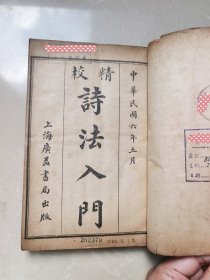 中華民國六年五月
精校
詩法入門
上海廣益書局出版
202370